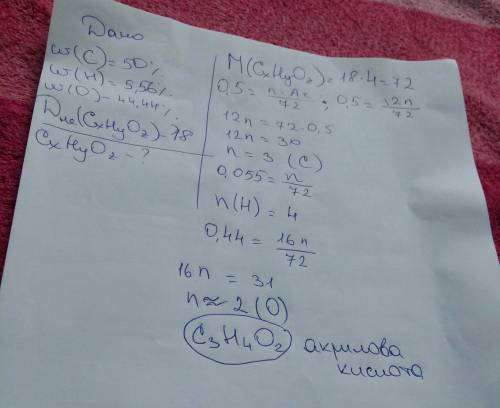 Дано
w(C)=50%
w(H)=5,56%
w(O)-44,44%
Dне(CxHyOz)-18
CxHyOz-?
M(CxHyOz)=18·4=72
0,5=n·Ar/72, 0,5=12n/72
12n=72·0,5
12n=30
n=3 (C)
0,055=n/72
n(H)=4
0,44=16n/72
16n=31
n≈2(O)
C3H4O2 акрилова
кислота